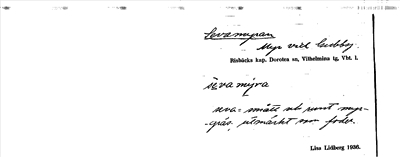 Levamyran
Myr vid
Risbäcks kap. Dorotea sn, Vilhelmina tg, Vbt. l.
myra
seva= smått och runt myr-
gräs, utmärkt som foder.
Lisa Lidberg 1936.